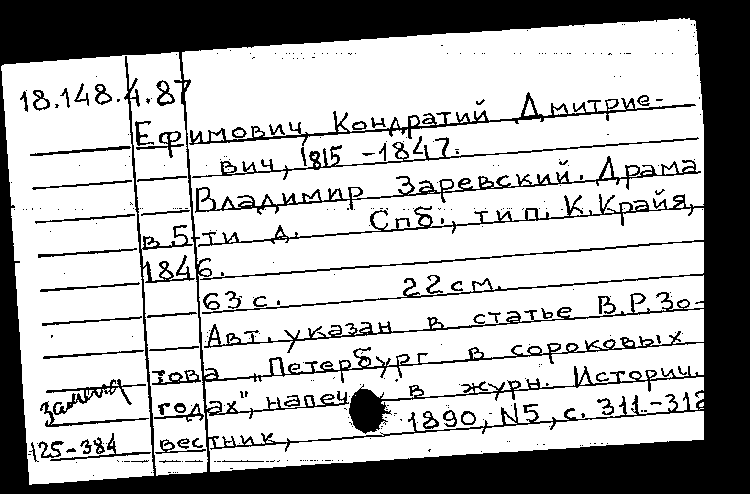 18.148.4.87
Ефимович, Кондратий Дмитрие-
вич, 1815-1847.
Владимир Заревский. Драма
в 5-ти д. Спб., тип. К. Крайя,
1846.
63 с. 22 см.
Авт. указан в статье В.Р. Зо-
това „Петербург в сороковых
годах", напеч. в журн. Историч.
вестник, 1890, N5, с. 311-312
замена
125-384